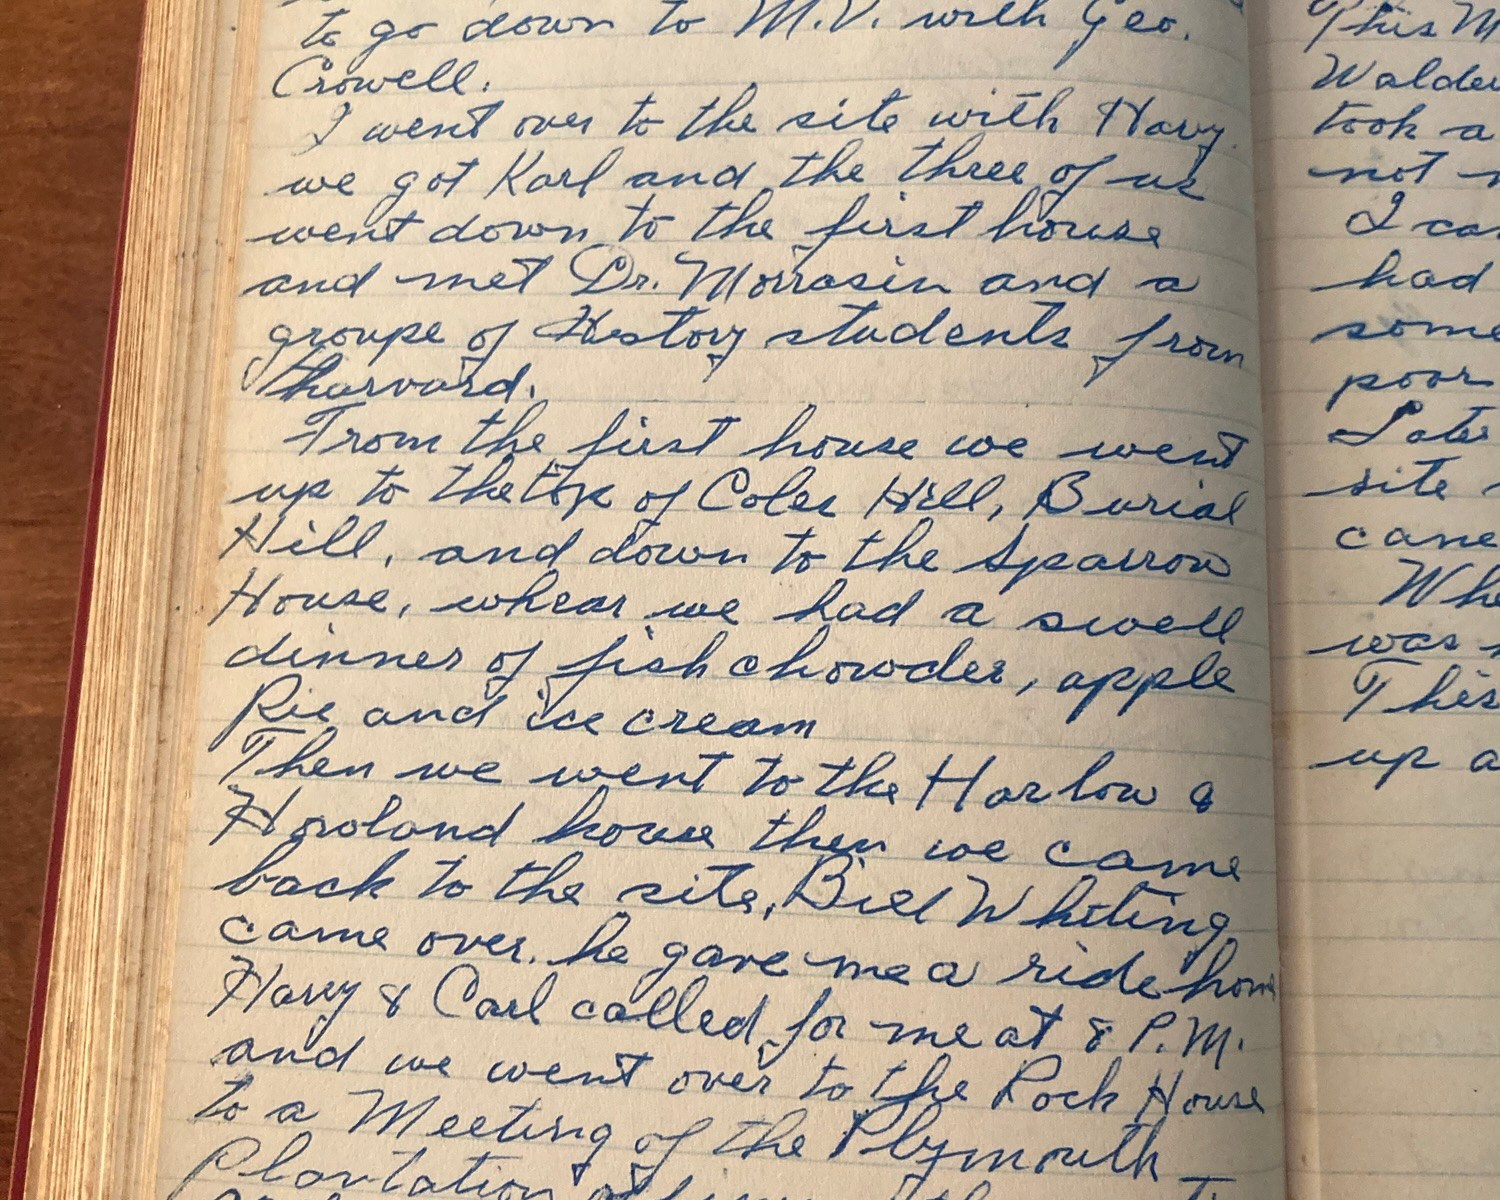 to go down to M.V. with Geo.
Crowell.
I went over to the site with Harry
we got Karl and the three of us
went down to the first house
and met Dr. Morrasin and a
groupe of History students from
Harvard.
From the first house we went
up to the top of Coles Hill, Burial
Hill, and down to the Sparrow
House, whear we had a swell
dinner of fish chowder, apple
Pie and ice cream
Then we went to the Harlow &
Howland house then we came
back to the site, Bill Whiting
came over. he gave me a ride home
Harry & Carl called for me at 8 P.M.
and we went over to the Rock House
to a Meeting of the Plymouth
Plantation
This M
Walde
took a
not
I ca
had
some
poor
Later
site
came
Whe
was
This
up a